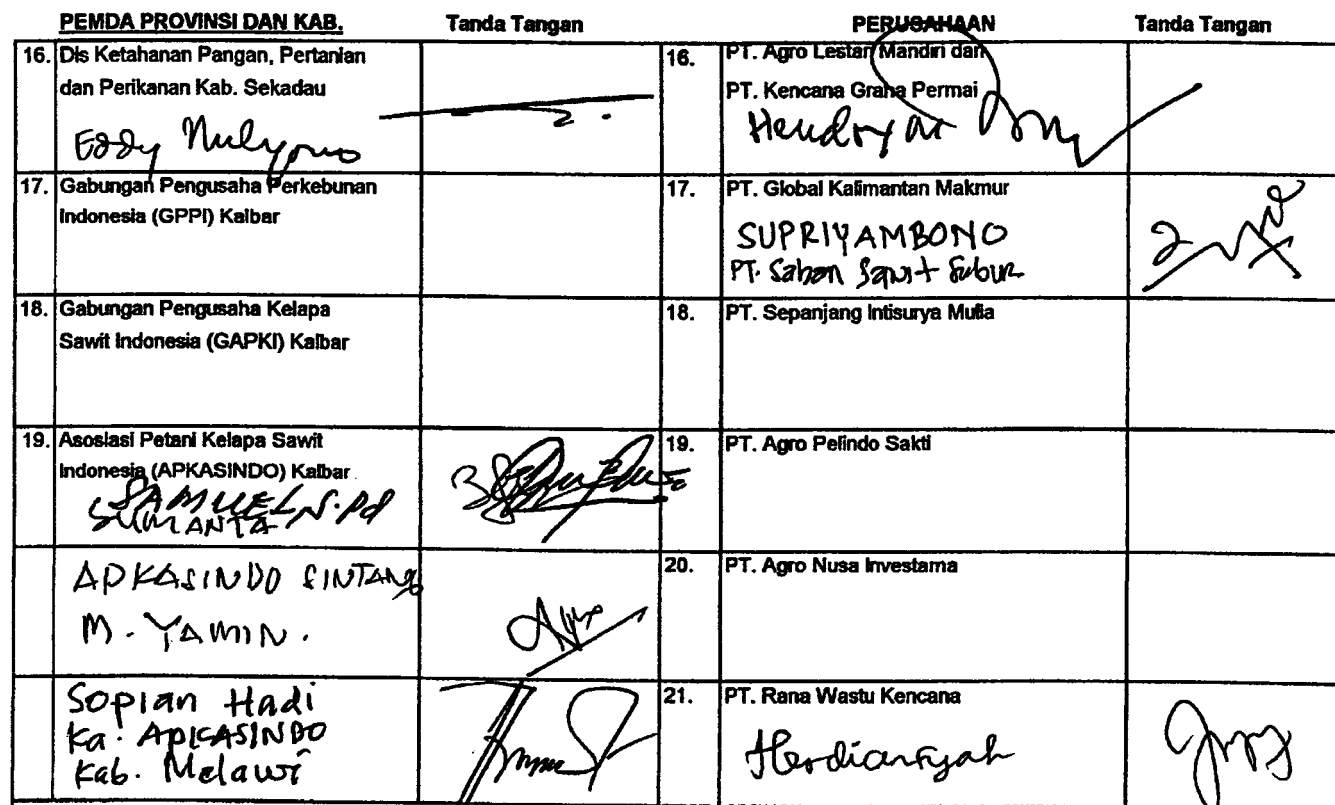 PEMDA PROVINSI DAN KAB. Tanda Tangan PERUSAHAAN Tanda Tangan
16. Dis Ketahanan Pangan, Pertanian
dan Perikanan Kab. Sekadau
Eddy Mulyono
16. PT. Agro Lestari Mandiri dan
PT. Kencana Graha Permai
17. Gabungan Pengusaha Perkebunan
Indonesia (GPPI) Kalbar
17. PT. Global Kalimantan Makmur
SUPRIYAMBONO
PT. Saban Sawit Subur
18. Gabungan Pengusaha Kelapa
Sawit Indonesia (GAPKI) Kalbar
18. PT. Sepanjang Intisurya Mulia
19. Asosiasi Petani Kelapa Sawit
Indonesia (APKASINDO) Kalbar
SAMUEL S.Pd
SUMANTA
19. PT. Agro Pelindo Sakti
APKASINDO SINTANG
M. YAMIN.
20. PT. Agro Nusa Investama
Sopian Hadi
Ka. APKASINDO
Kab. Melawi
21. PT. Rana Wastu Kencana
Herdiansyah